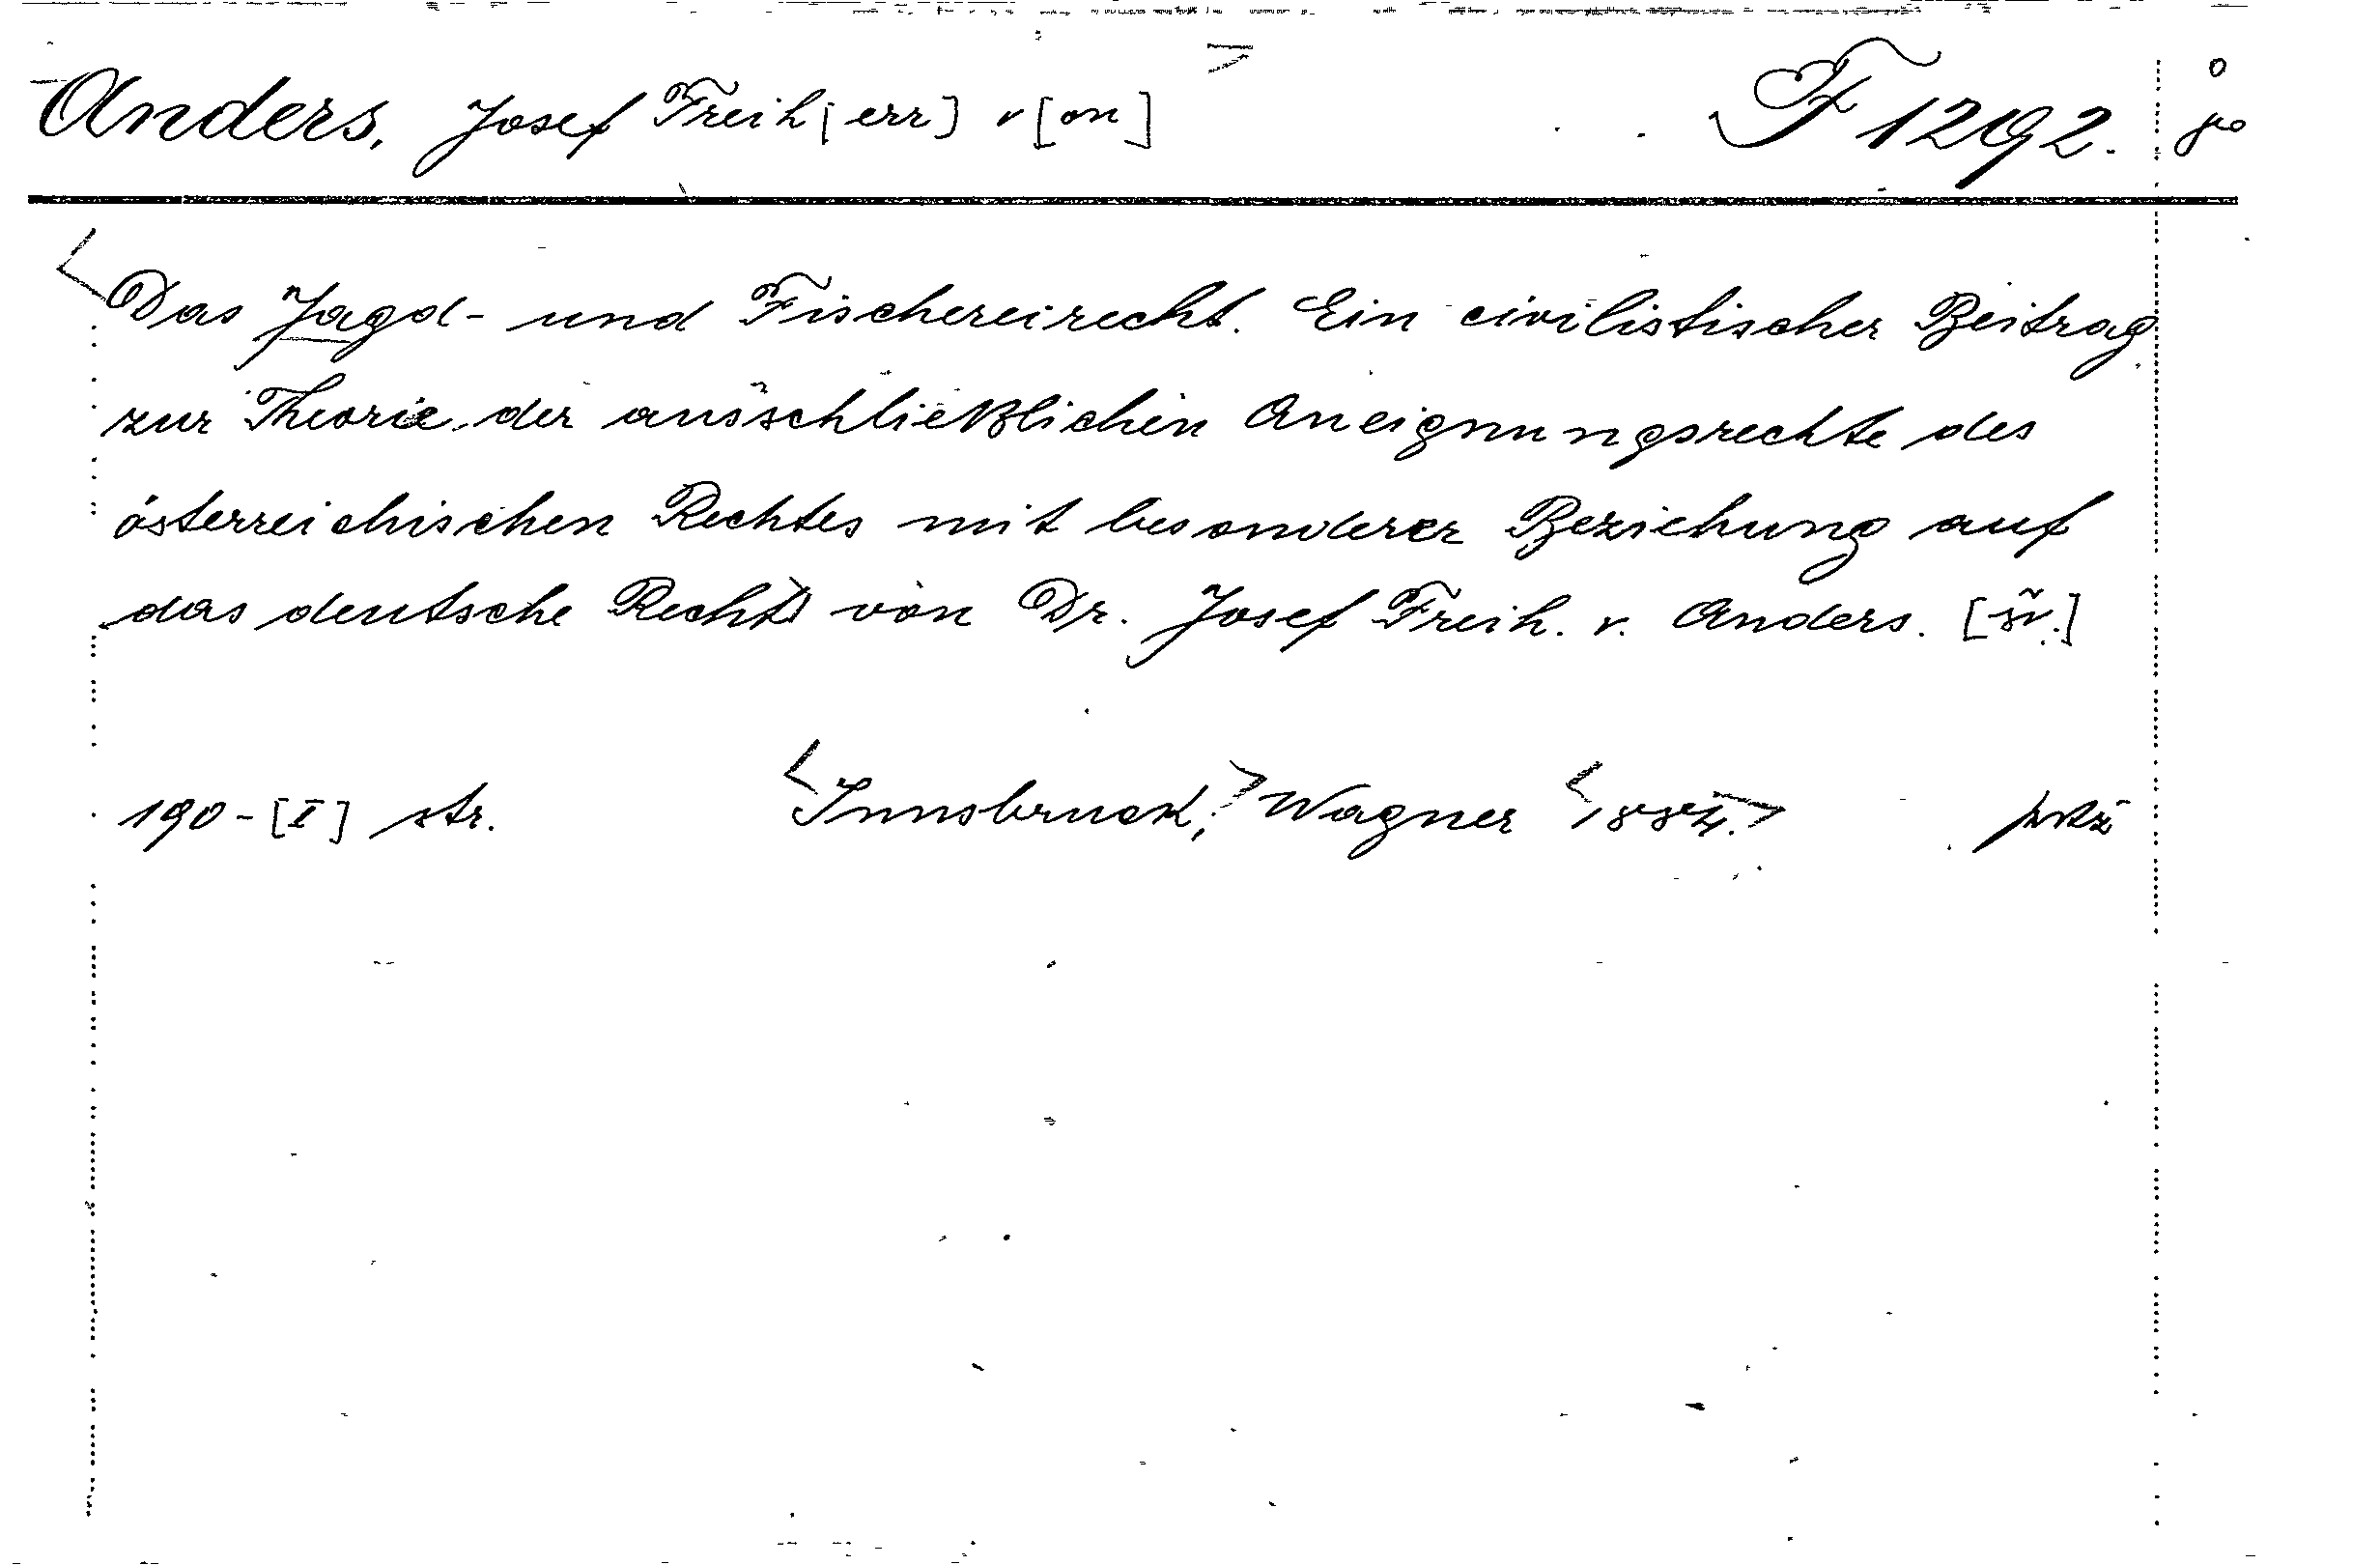 Anders, Josef Freih[err] v[on] F 1292.
Das Jagd- und Fischereirecht. Ein civilistischer Beitrag
zur Theorie der ausschließlichen Aneignungsrechte des
österreichischen Rechtes mit besonderer Beziehung auf
das deutsche Recht von Dr. Josef Freih. v. Anders.
190-[I] str. Innsbruck, Wagner 1884.